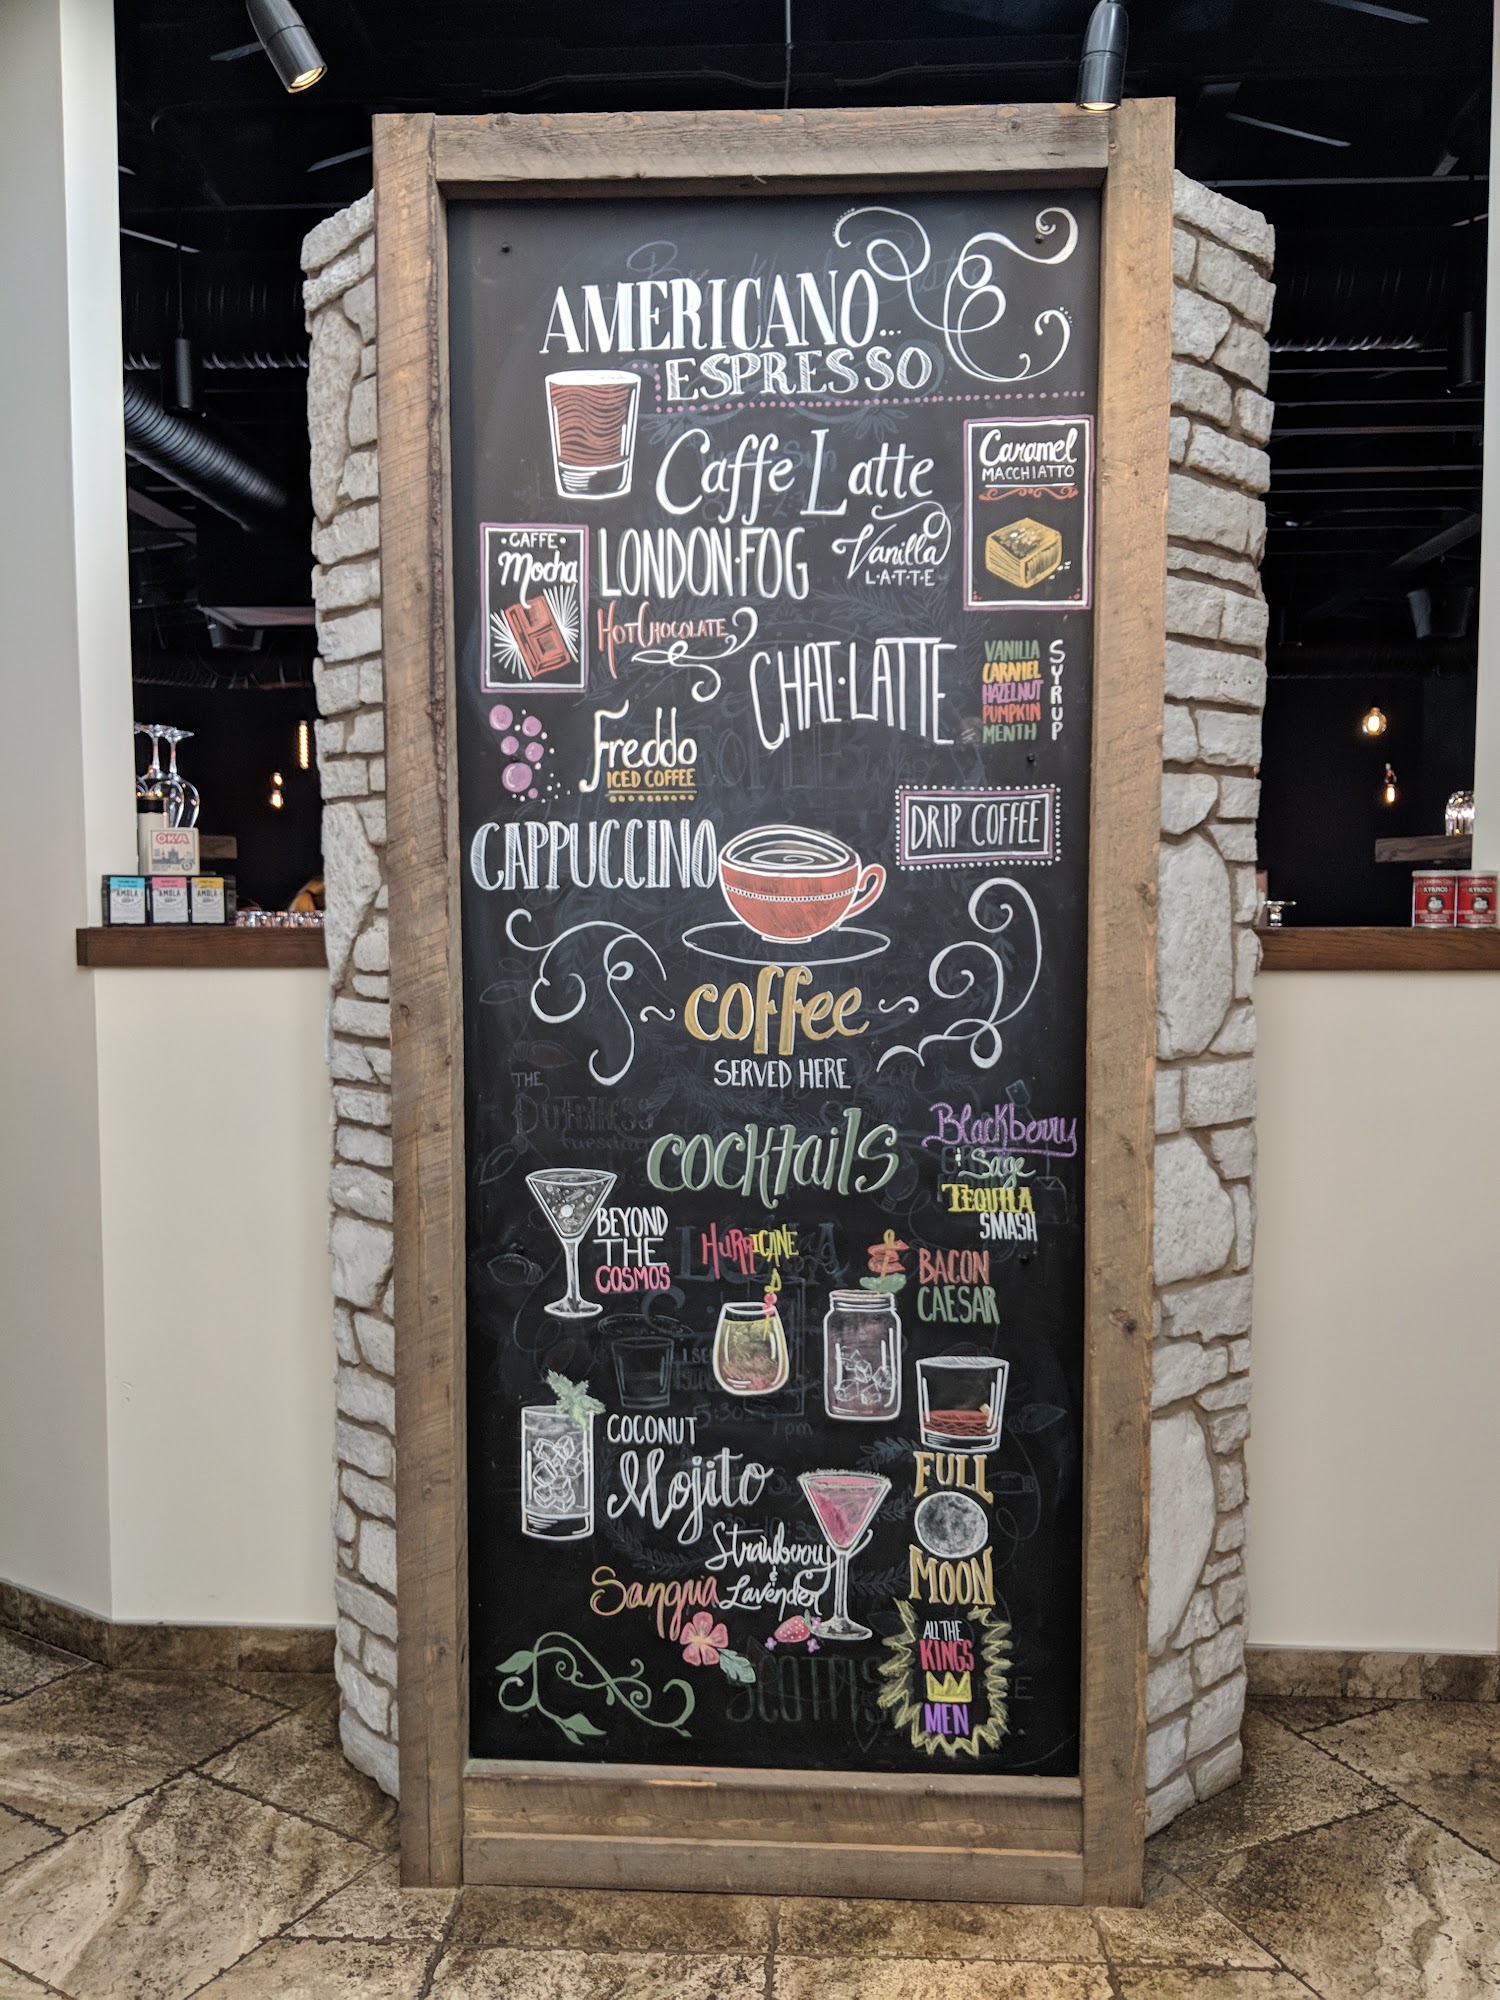 AMERICANO...
ESPRESSO
Caffe Latte
Caramel
MACCHIATTO
·CAFFE·
Mocha
LONDON·FOG
Vanilla
L·A·T·T·E
HOT CHOCOLATE
CHAI·LATTE
VANILLA
CARAMEL
HAZELNUT
PUMPKIN
MENTH
SYRUP
Freddo
ICED COFFEE
CAPPUCCINO
DRIP COFFEE
~ coffee ~
SERVED HERE
THE
cocktails
Blackberry
& Sage
TEQUILA
SMASH
BEYOND
THE
COSMOS
HURRICANE
BACON
CAESAR
COCONUT
Mojito
FULL
MOON
Strawberry
&
Lavender
Sangria
ALL THE
KINGS
MEN
OKA
AMOLA
AMOLA
AMOLA